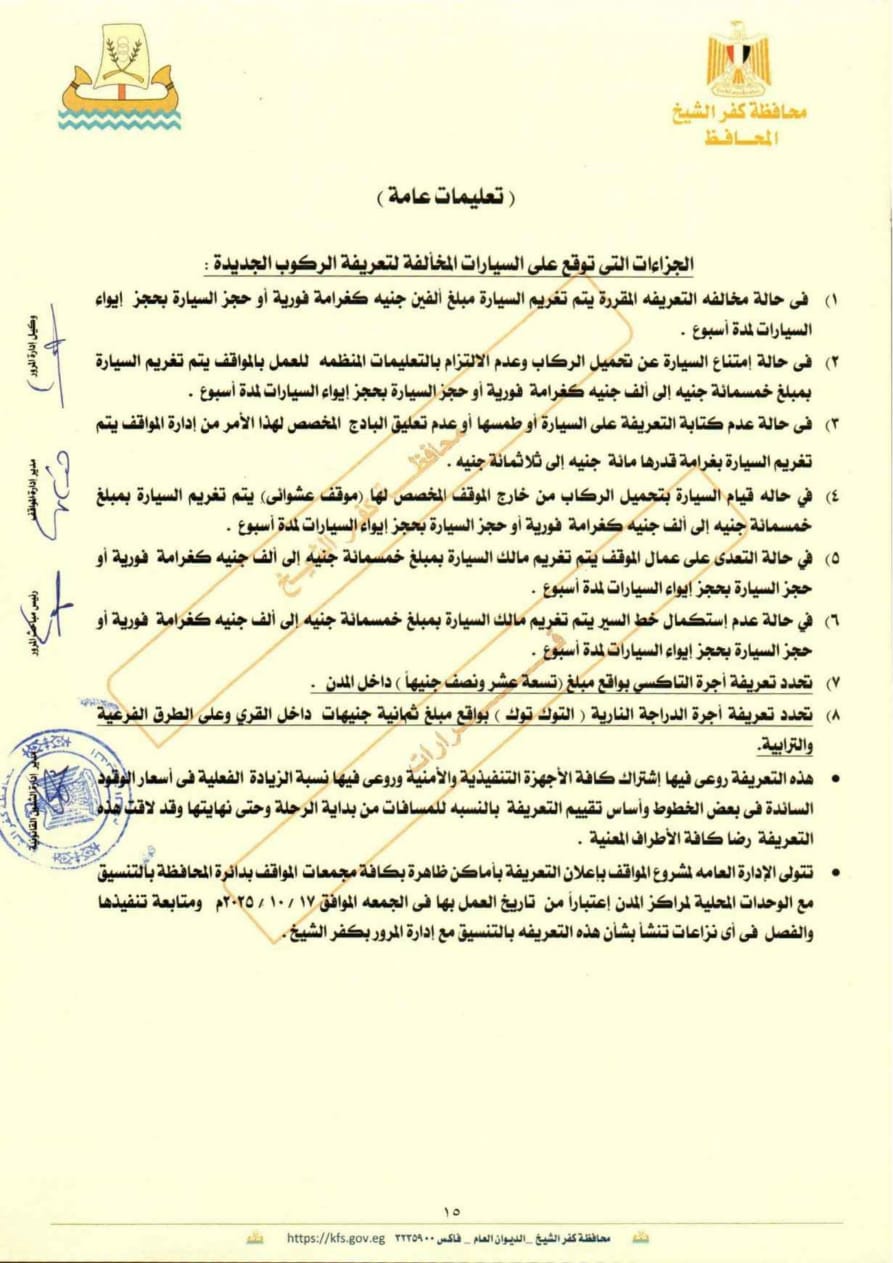 محافظة كفر الشيخ
المحـــافـظ
( تعليمات عامة )
الجزاءات التى توقع على السيارات المخألفة لتعريفة الركوب الجديدة :
١) فى حالة مخالفه التعريفه المقررة يتم تغريم السيارة مبلغ ألفين جنيه كغرامة فورية أو حجز السيارة بحجز إيواء
السيارات لمدة أسبوع .
٢) فى حالة إمتناع السيارة عن تحميل الركاب وعدم الالتزام بالتعليمات المنظمه للعمل بالمواقف يتم تغريم السيارة
بمبلغ خمسمائة جنيه إلى ألف جنيه كغرامة فورية أو حجز السيارة بحجز إيواء السيارات لمدة أسبوع .
٣) فى حالة عدم كتابة التعريفة على السيارة أو طمسها أو عدم تعليق البادج المخصص لهذا الأمر من إدارة المواقف يتم
تغريم السيارة بغرامة قدرها مائة جنيه إلى ثلاثمائة جنيه .
٤) في حاله قيام السيارة بتحميل الركاب من خارج الموقف المخصص لها (موقف عشوائى) يتم تغريم السيارة بمبلغ
خمسمائة جنيه إلى ألف جنيه كغرامة فورية أو حجز السيارة بحجز إيواء السيارات لمدة أسبوع .
٥) في حالة التعدى على عمال الموقف يتم تغريم مالك السيارة بمبلغ خمسمائة جنيه إلى ألف جنيه كغرامة فورية أو
حجز السيارة بحجز إيواء السيارات لمدة أسبوع .
٦) في حالة عدم إستكمال خط السير يتم تغريم مالك السيارة بمبلغ خمسمائة جنيه إلى ألف جنيه كغرامة فورية أو
حجز السيارة بحجز إيواء السيارات لمدة أسبوع .
٧) تحدد تعريفة أجرة التاكسي بواقع مبلغ (تسعة عشر ونصف جنيهاً) داخل المدن .
٨) تحدد تعريفة أجرة الدراجة النارية ( التوك توك ) بواقع مبلغ ثمانية جنيهات داخل القري وعلى الطرق الفرعية
والترابية.
• هذه التعريفة روعى فيها إشتراك كافة الأجهزة التنفيذية والأمنية وروعى فيها نسبة الزيادة الفعلية فى أسعار الوقود
السائدة فى بعض الخطوط وأساس تقييم التعريفة بالنسبه للمسافات من بداية الرحلة وحتى نهايتها وقد لاقت هذه
التعريفة رضا كافة الأطراف المعنية .
• تتولى الإدارة العامه لمشروع المواقف بإعلان التعريفة بأماكن ظاهرة بكافة مجمعات المواقف بدائرة المحافظة بالتنسيق
مع الوحدات المحلية لمراكز المدن إعتباراً من تاريخ العمل بها فى الجمعه الموافق ١٧ / ١٠ / ٢٠٢٥م ومتابعة تنفيذها
والفصل فى أى نزاعات تنشأ بشأن هذه التعريفه بالتنسيق مع إدارة المرور بكفر الشيخ.
وكيل إدارة المرور
مدير إدارة المواقف
رئيس مباحث المرور
مدير إدارة الشئون القانونية
محافظ كفر الشيخ
١٥
محافظة كفر الشيخ _ الديوان العام _ فاكس ٣٢٣٥٩٠٠ https://kfs.gov.eg